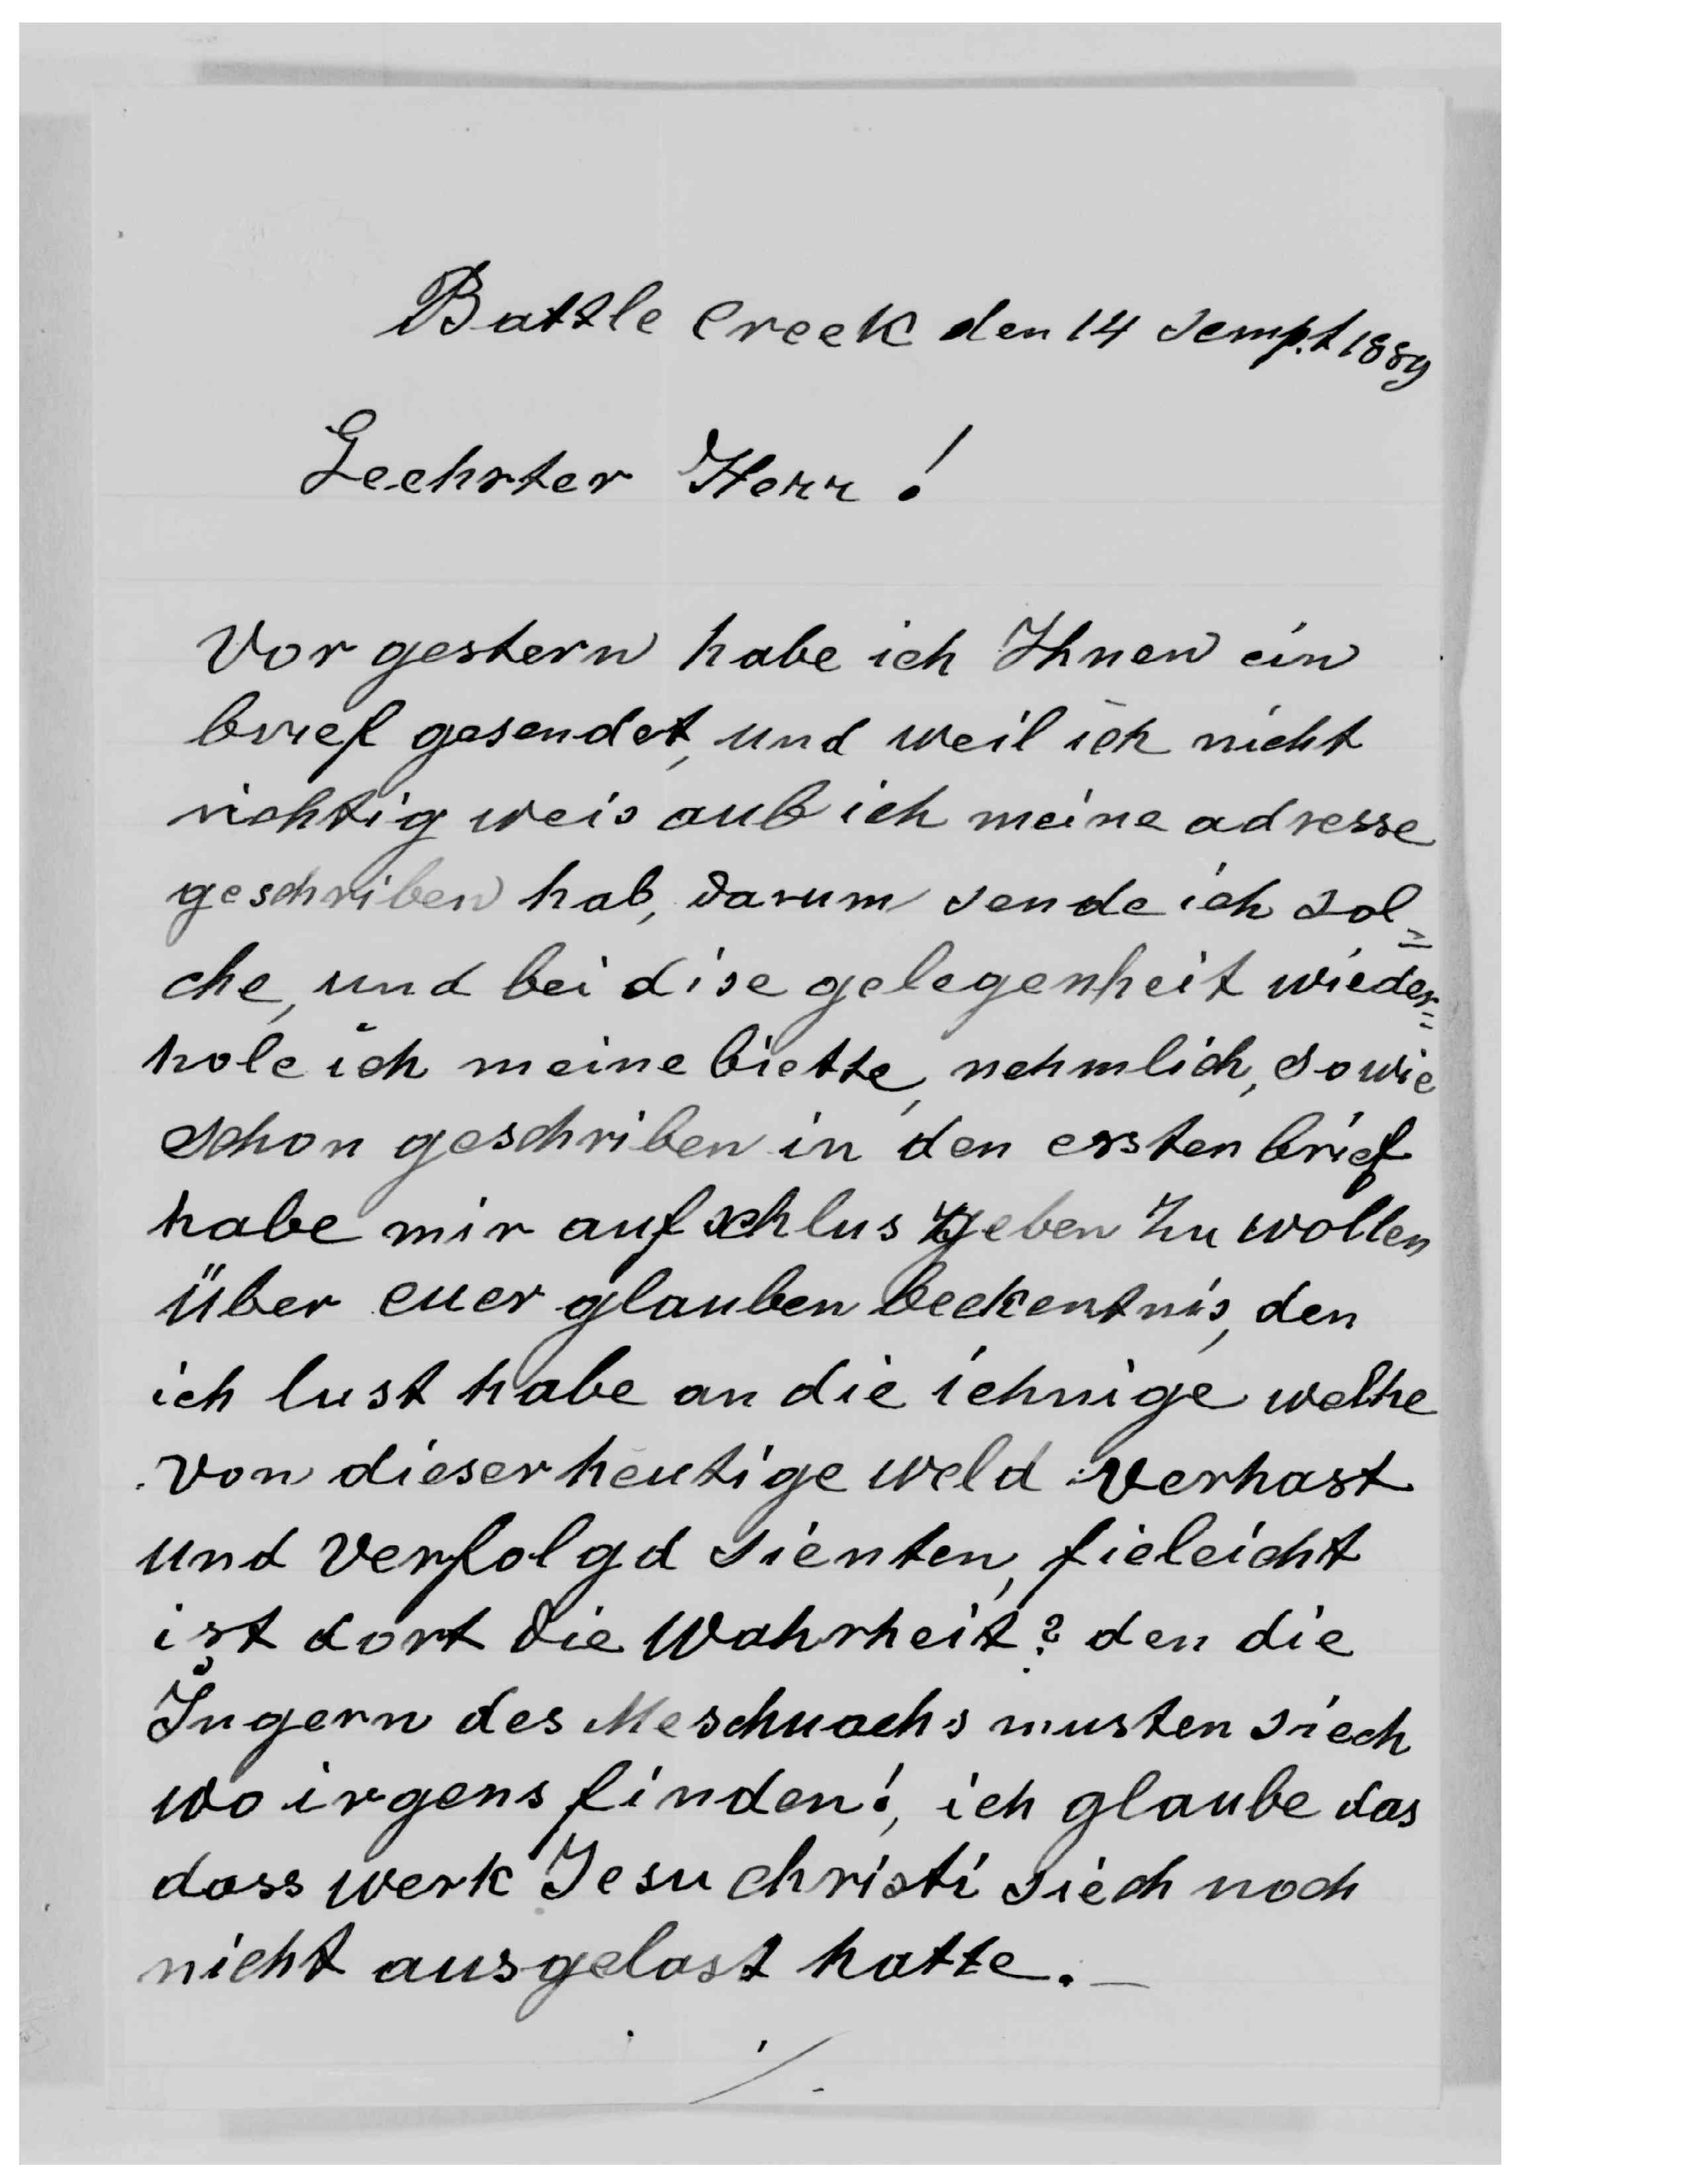 Battle Creek den 14 Sempt 1889
Geehrter Herr !
Vor gestern habe ich Ihnen ein
brief gesendet, und weil ich nicht
richtig weis aub ich meine adresse
geschriben hab, darum sende ich sol=
che, und bei dise gelegenheit wieder=
hole ich meine biette, nehmlich, sowie
schon geschriben in den ersten brief
habe mir aufschlus geben zu wollen
über euer glauben beckentnis, den
ich lust habe an die iehnige welhe
von dieser heutige weld verhast
und verfolgd sienten, fieleicht
ist dort die Wahrheit? den die
Jugern des Meschuachs musten siech
wo irgens finden!, ich glaube das
dass werk Jesu christi siech noch
nicht ausgelast hatte. —
./.